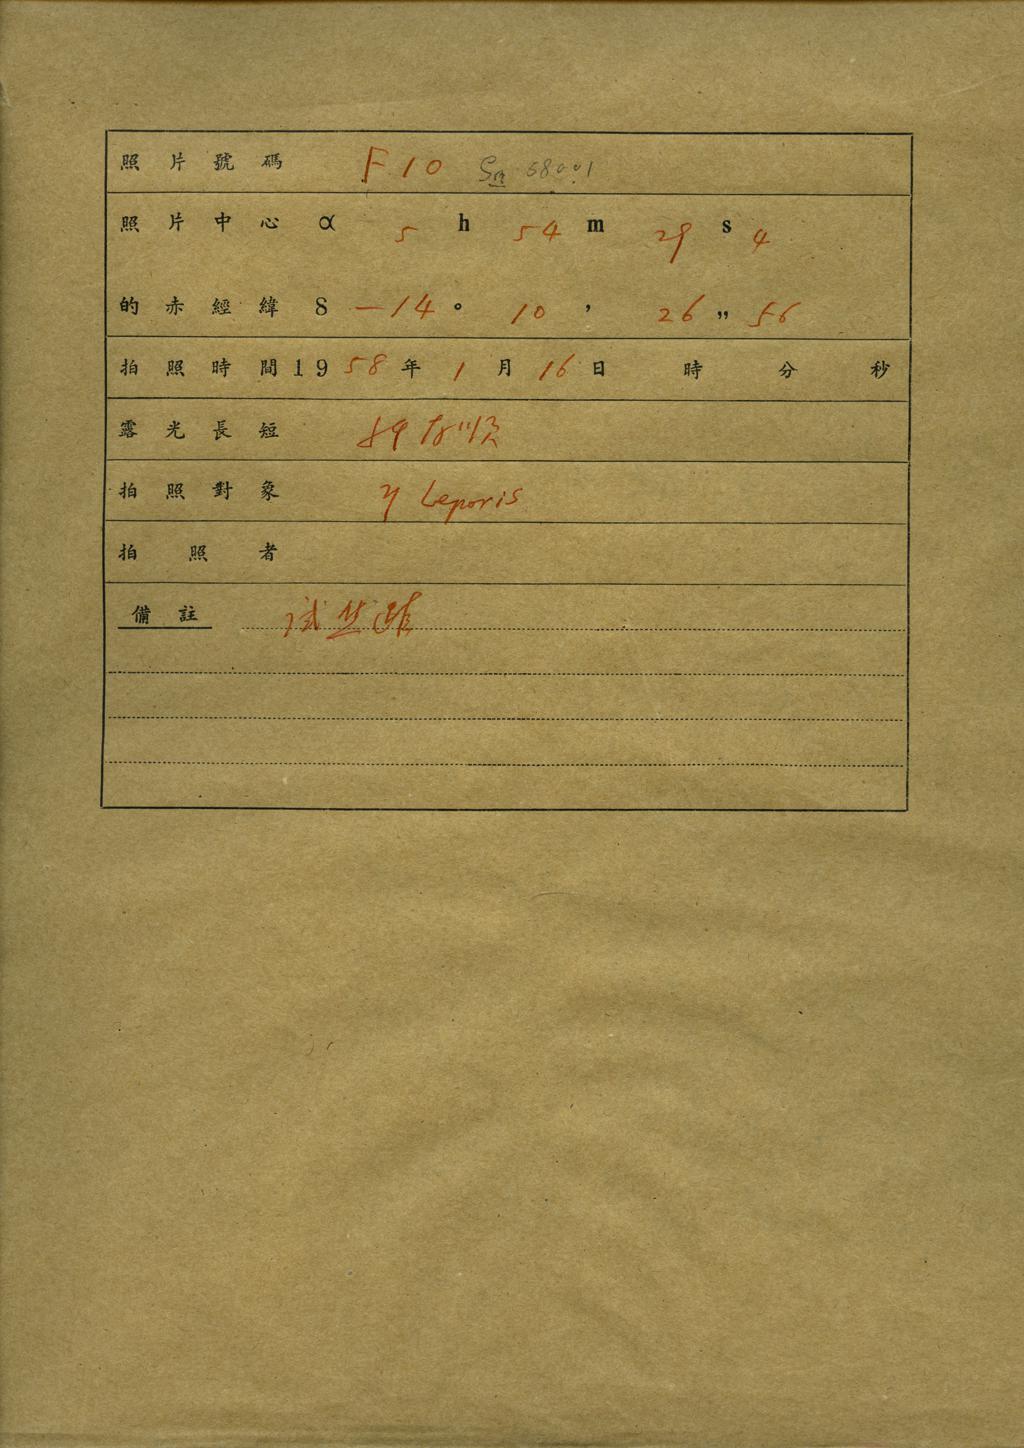 照片號碼 F10 58001
照片中心 α 5 h 54 m 29 s 4
的赤經緯 δ -14 ° 10 ' 26 " 56
拍照時間 1958年 1月 16日 時 分 秒
露光長短
拍照對象 η Leporis
拍照者
備註 试